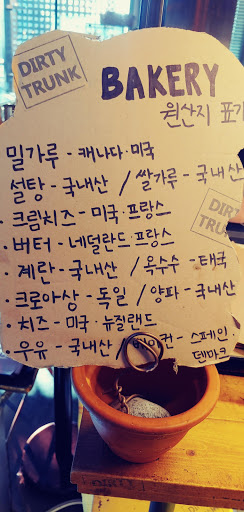 DIRTY
TRUNK
BAKERY
원산지 표기
밀가루 - 캐나다·미국
설탕 - 국내산 / 쌀가루 - 국내산
· 크림치즈 - 미국·프랑스
· 버터 - 네덜란드·프랑스
· 계란 - 국내산 / 옥수수 - 태국
· 크로아상 - 독일 / 양파 - 국내산
· 치즈 - 미국·뉴질랜드
우유 - 국내산 / - 스페인·
덴마크
DIRTY
TRUNK
DIRTY